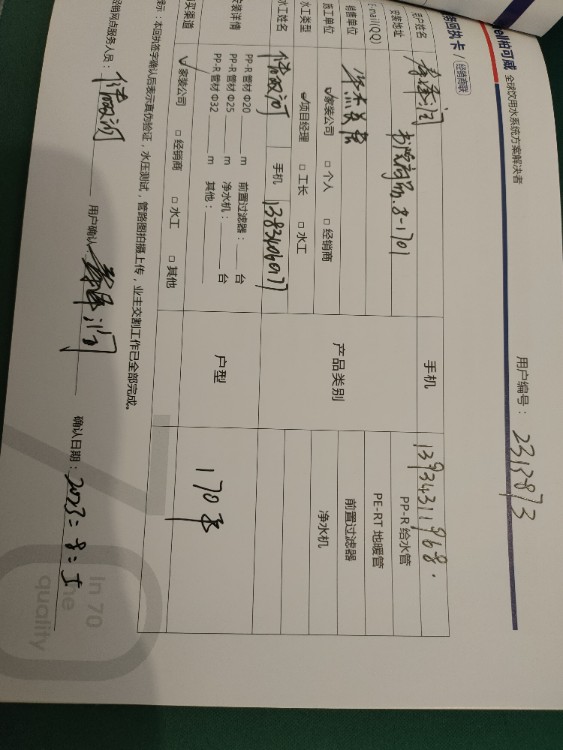 ell柏可威 全球饮用水系统方案解决者
回执卡 / 经销商联
用户编号：2313873
客户姓名
手机 13934311968.
安装地址 书院商阶.8-1701
E-mail(QQ)
销售单位
产品类别
PP-R 给水管
PE-RT 地暖管
前置过滤器
净水机
施工单位 ☑家装公司 □ 个人 □ 经销商
水工类型 ☑项目经理 □ 工长 □ 水工
水工姓名
手机 13834069177
安装详情
PP-R 管材 Φ20 ____ m 前置过滤器：____ 台
PP-R 管材 Φ25 ____ m 净水机：____ 台
PP-R 管材 Φ32 ____ m 其他：____
户型 170平
购买渠道 ☑家装公司 □ 经销商 □ 水工 □ 其他
提示：本回执签字确认后表示真伪验证，水压测试，管路图拍摄上传，业主交割工作已全部完成。
经销网点服务人员：
用户确认：
确认日期：2023=8=5
In 70
quality